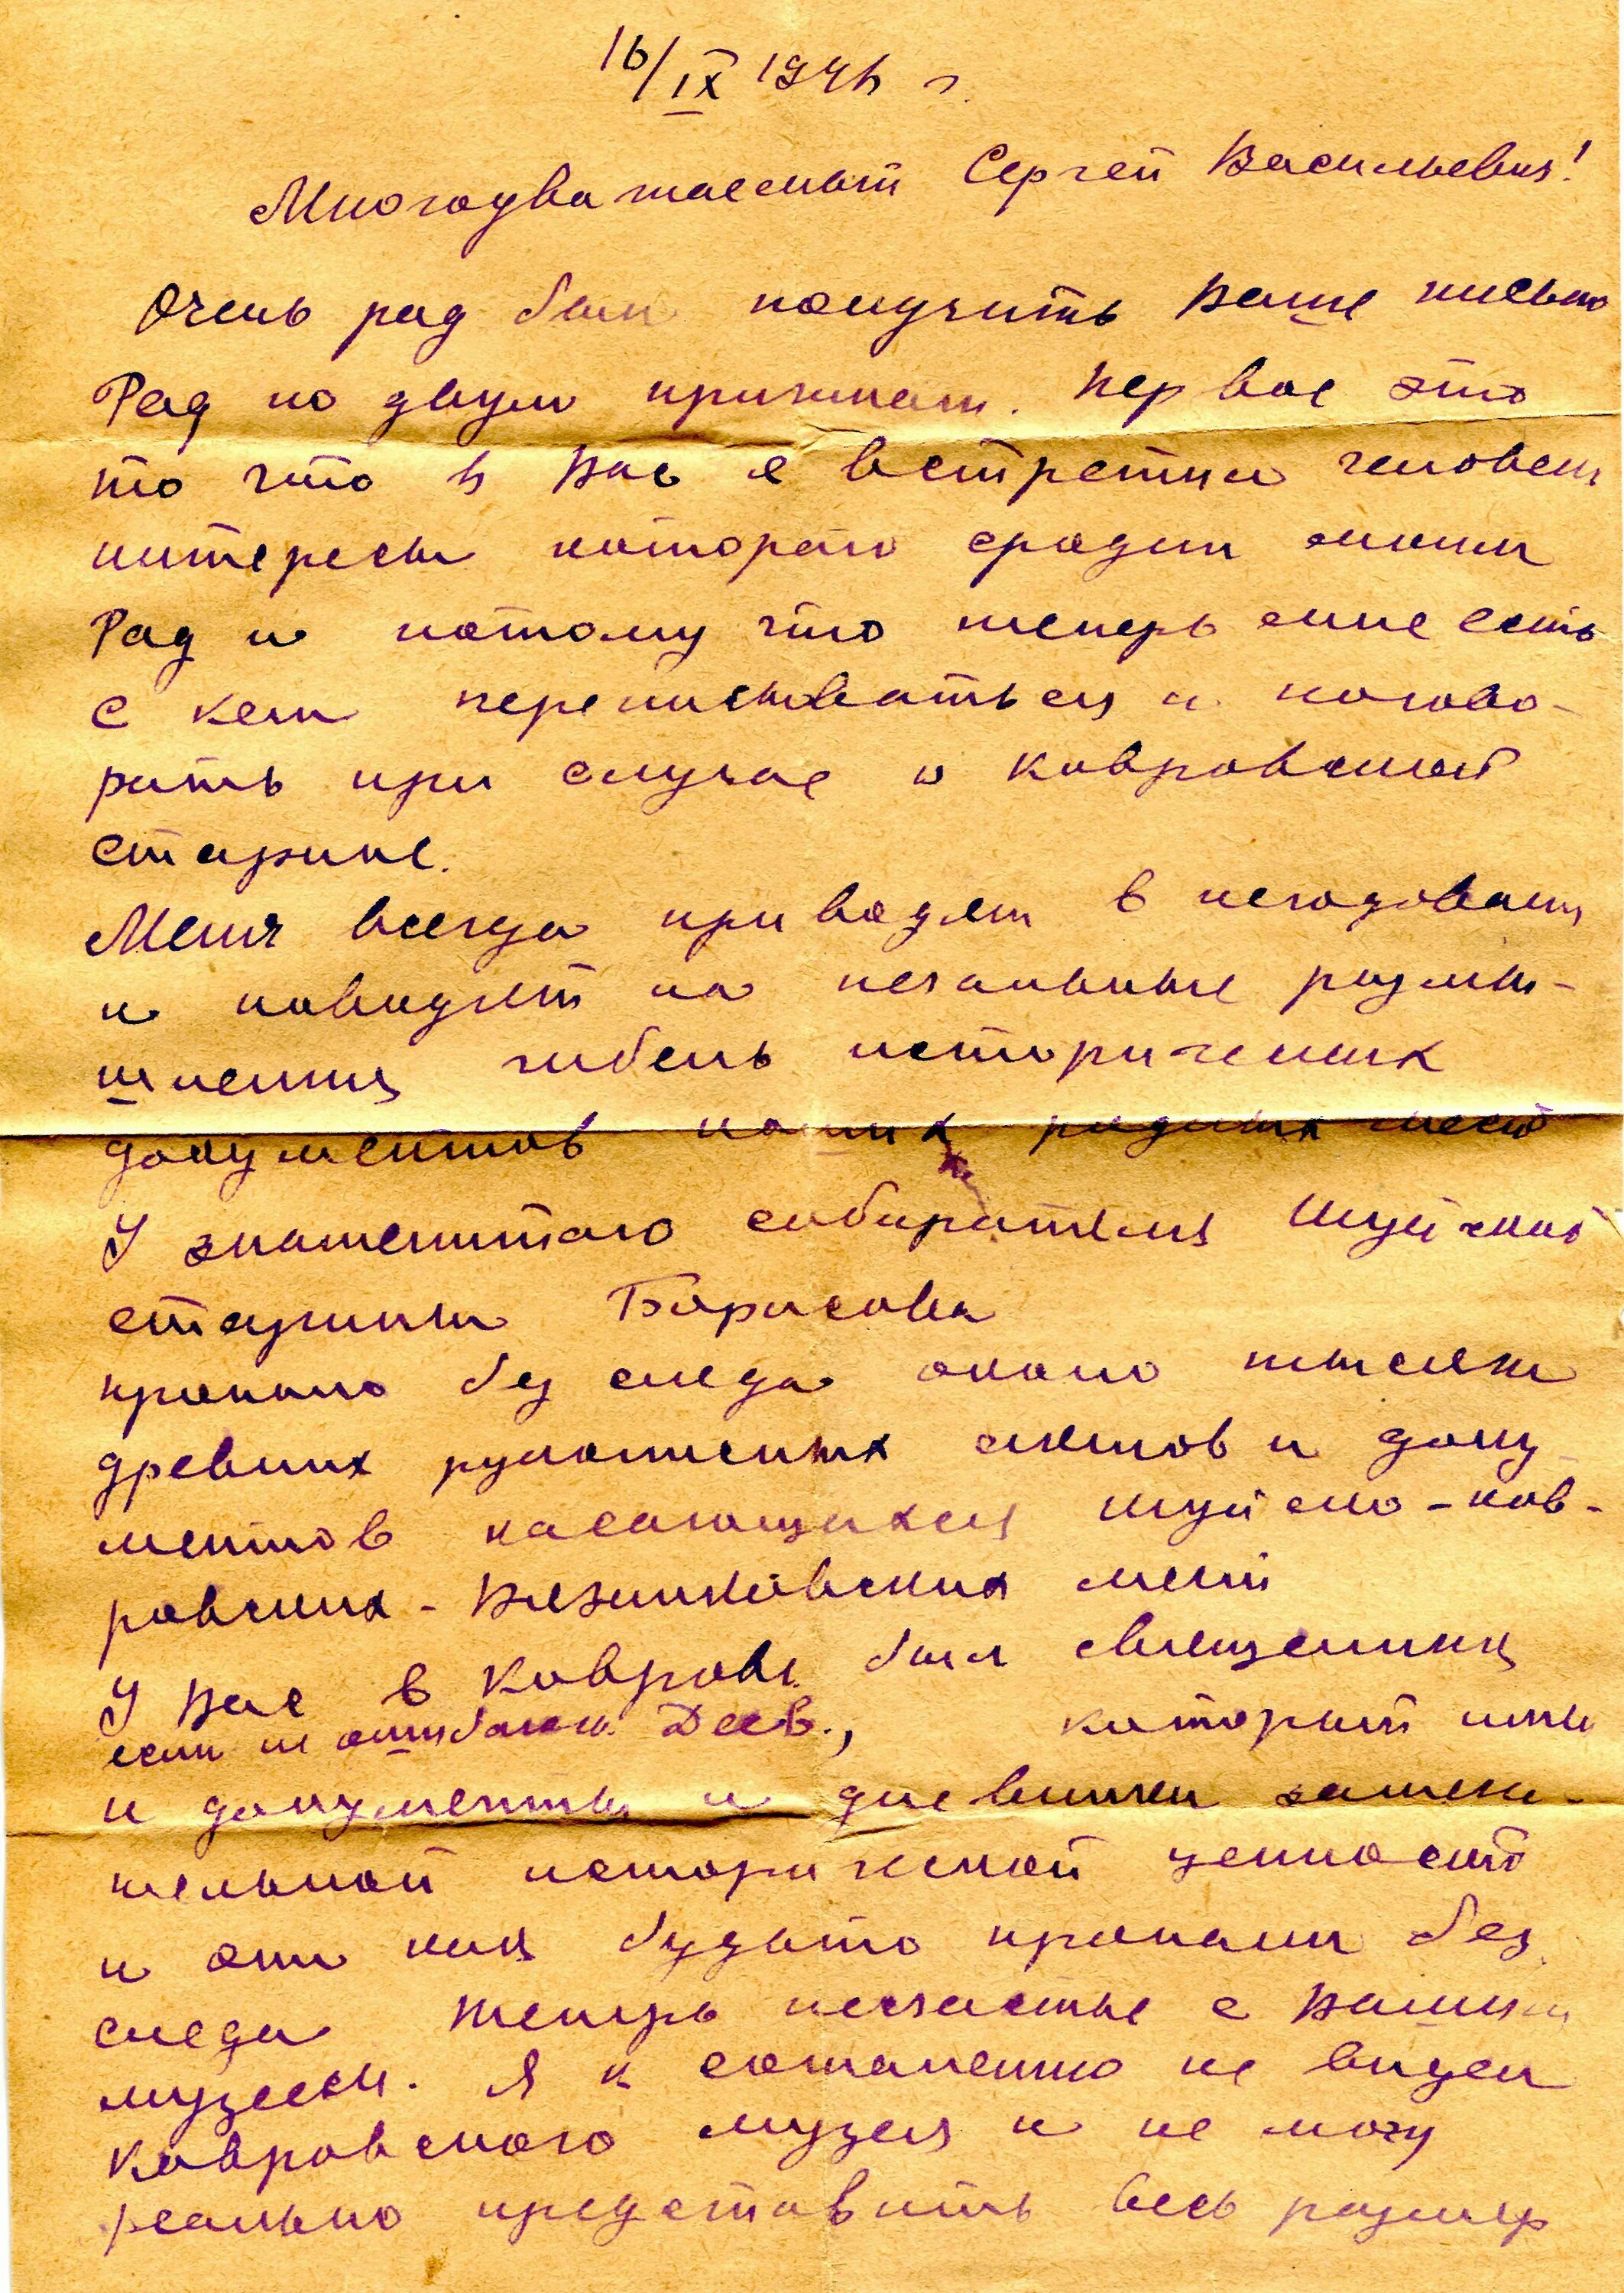 16/IX 1946 г.
Многоуважаемый Сергей Васильевич!
Очень рад был получить Ваше письмо
Рад по двум причинам. Первое это
то что в Вас я встретил человека
интересы которого сродни моим
Рад и потому что теперь мне есть
с кем переписываться и погово-
рить при случае о Ковровской
старине.
Меня всегда приводят в негодование
и наводят на печальные размы-
шления гибель исторических
документов наших родных мест
У знаменитого собирателя Шуйской
старины Борисова
пропало без следа около тысячи
древних рукописных актов и доку
ментов касающихся Шуйско-Ков-
ровских-Вязниковских мест
У Вас в Коврове был священник
если не ошибаюсь Деев., который имел
и документы и дневники замеча-
тельной исторической ценности
и они как будьто пропали без
следа Теперь несчастье с Вашим
музеем. Я к сожалению не видел
Ковровского музея и не могу
реально представить весь размер